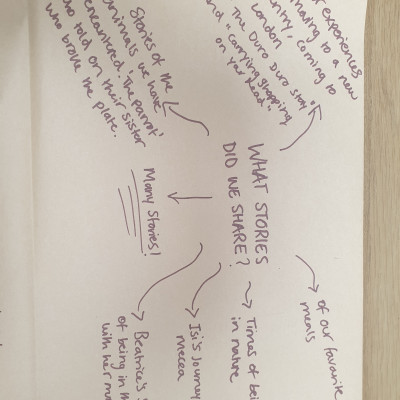 WHAT STORIES
DID WE SHARE?
experiences
having to a new
country, coming to
London
"The Duro Duro story"
and carrying shopping
on your head"
Stories of the
animals we have
encountered. 'The parrot'
who told on their sister
who broke the plate.
Many Stories!
of our favourite
meals
Times of
in nature
Isi's Journey
mecca
Beatrice's
of being in
with her